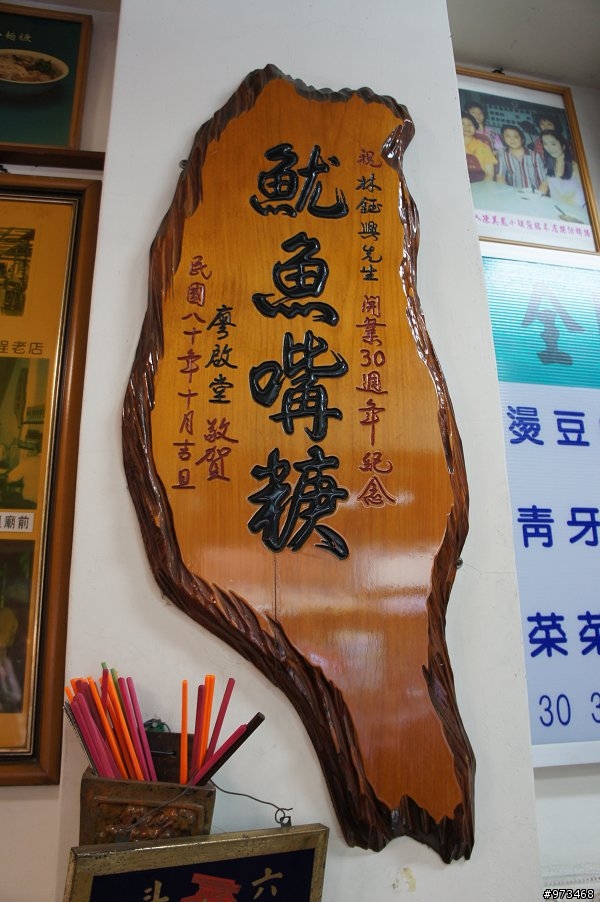 魷魚嘴羹
祝林鉦興先生開業30週年紀念
廖啟堂 敬賀
民國八十年十月吉旦
程老店
廟前
全
燙豆
青牙
菜菜
30 3
六
斗
#973468